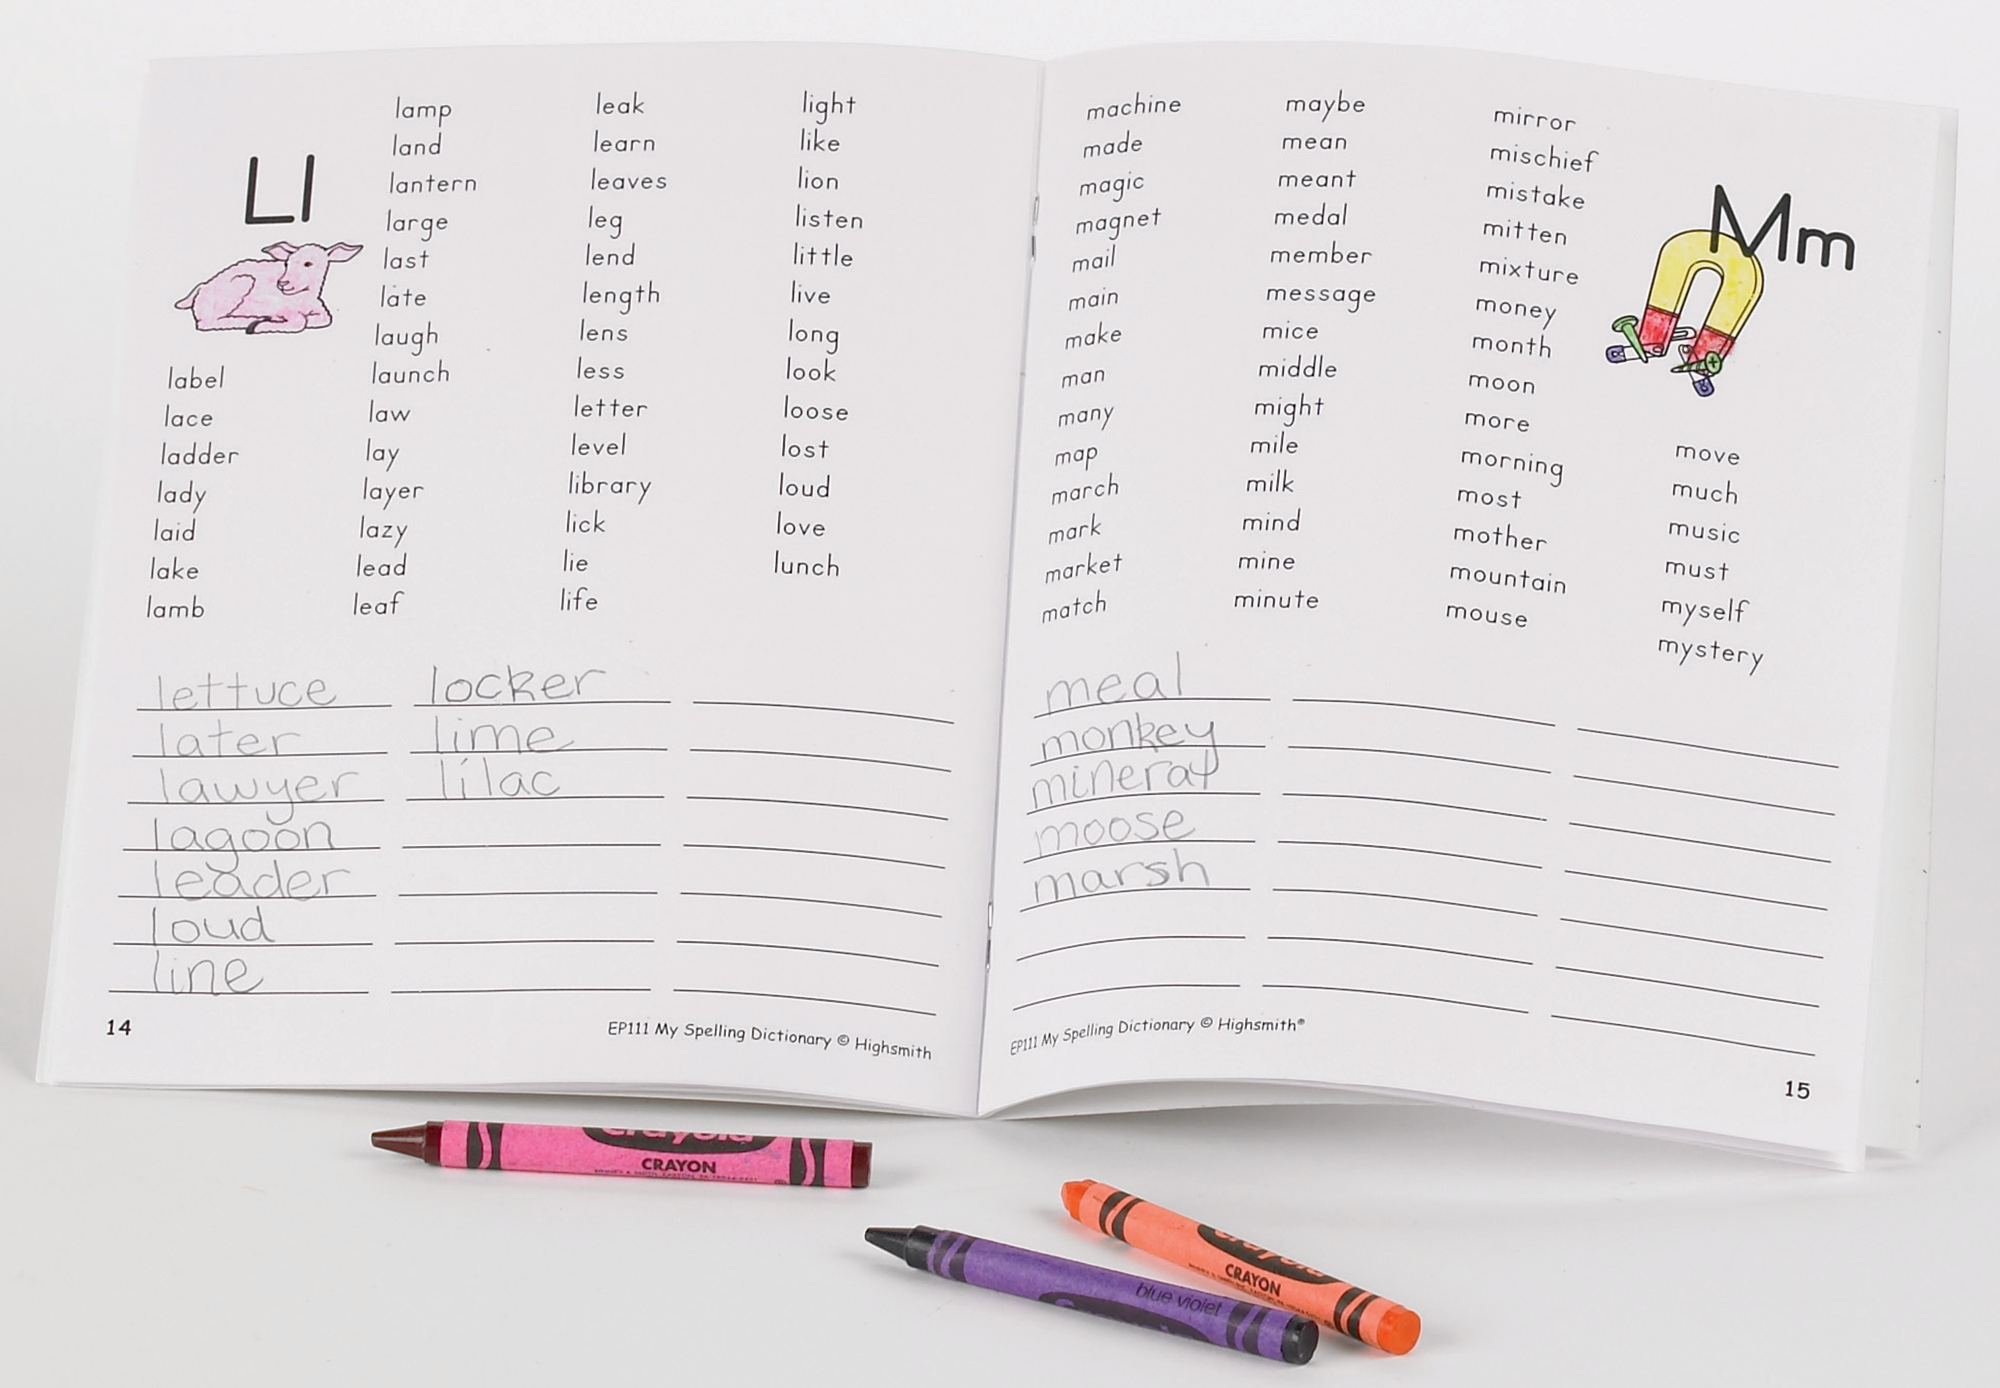 Ll
label
lace
ladder
lady
laid
lake
lamb
lamp
land
lantern
large
last
late
laugh
launch
law
lay
layer
lazy
lead
leaf
leak
learn
leaves
leg
lend
length
lens
less
letter
level
library
lick
lie
life
light
like
lion
listen
little
live
long
look
loose
lost
loud
love
lunch
lettuce
later
lawyer
lagoon
leader
loud
line
locker
lime
lilac
14
EP111 My Spelling Dictionary © Highsmith
machine
made
magic
magnet
mail
main
make
man
many
map
march
mark
market
match
maybe
mean
meant
medal
member
message
mice
middle
might
mile
milk
mind
mine
minute
mirror
mischief
mistake
mitten
mixture
money
month
moon
more
morning
most
mother
mountain
mouse
Mm
move
much
music
must
myself
mystery
meal
monkey
mineral
moose
marsh
EP111 My Spelling Dictionary © Highsmith®
15
Crayola
CRAYON
Crayola
CRAYON
blue violet